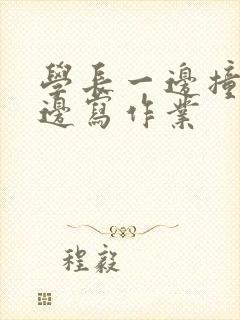 學長一邊撞
邊寫作業
程毅